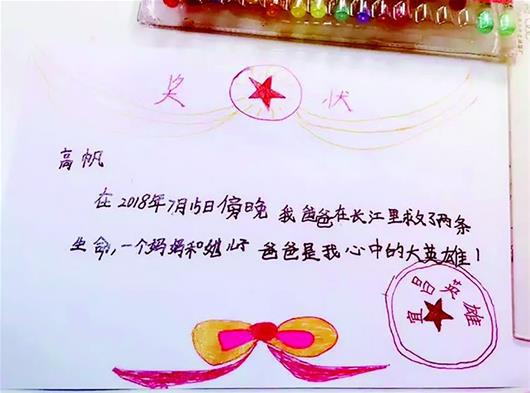 奖 状
高帆
在2018年7月15日傍晚 我爸爸在长江里救了两条
生命,一个妈妈和她 爸爸是我心中的大英雄!
宜昌英雄